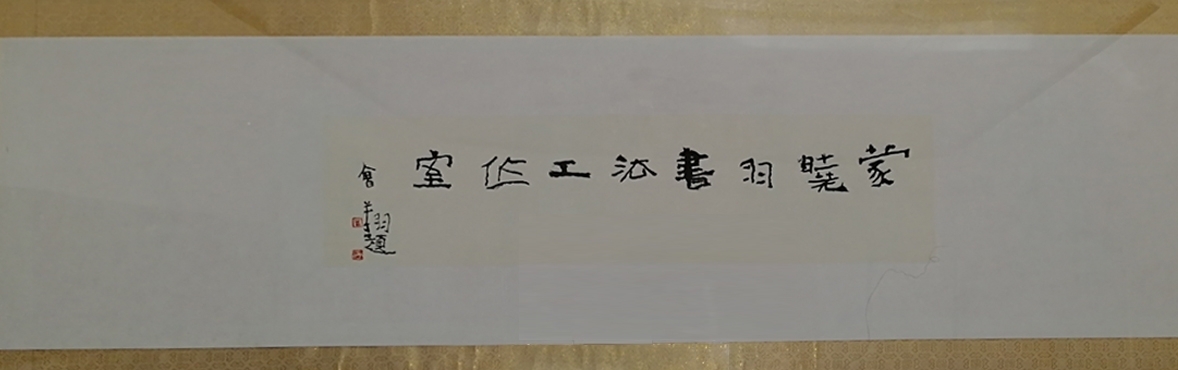 蒙曉羽書法工作室
會翔題